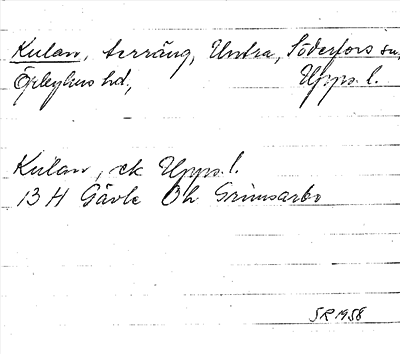 Kulan, terräng, Untra, Söderfors sn,
Örbyhus hd, Upps. l.
Kulan, ek Upps. l.
13 H Gävle Oh Grimsarbo
SR 1958